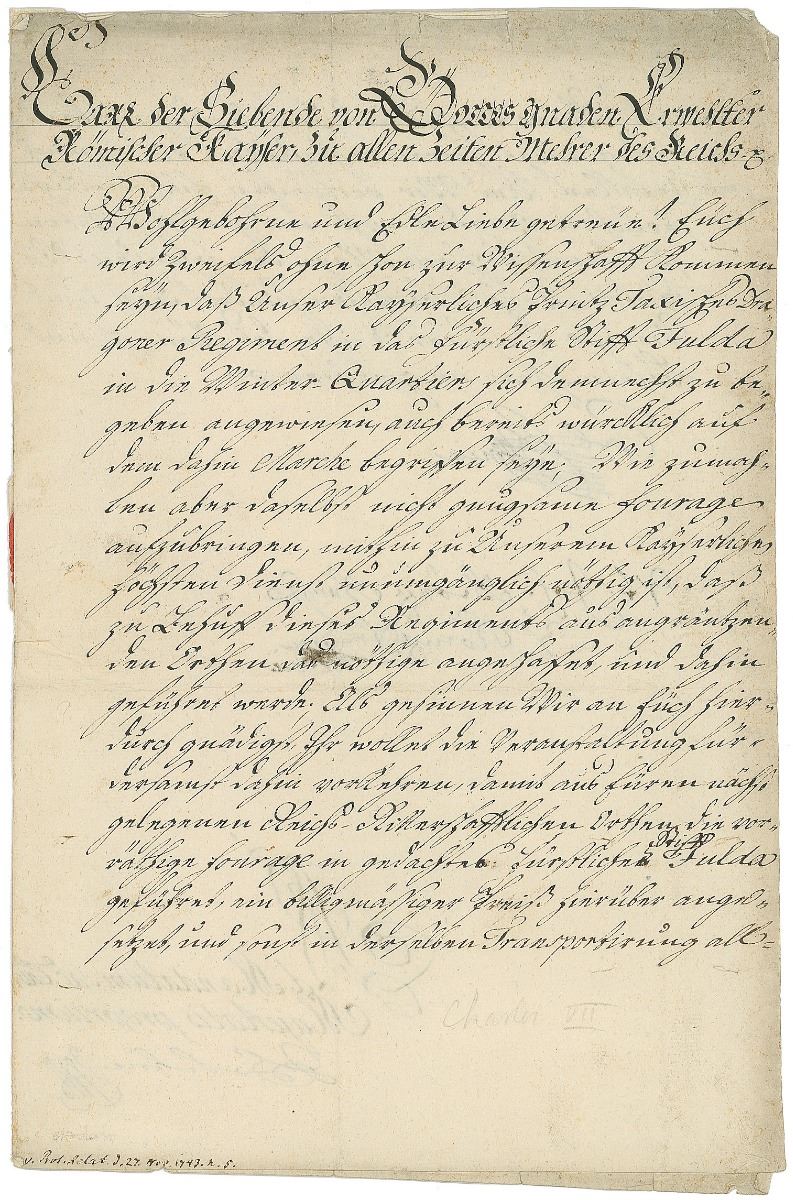 Carl der Siebende von Gottes gnaden Erwehlter
Römischer Kayser, zu allen Zeiten Mehrer des Reichs
Wohlgebohrne und Edle Liebe getreue! Euch
wird Zweifels ohne schon zur Wissenschafft kommen
seyn, daß Unser Kayserliches Printz Taxisches Dra-
goner Regiment in das Fürstliche Stifft Fulda
in die Winter-Quartier sich demnechst zu be-
geben angewiesen, auch bereits würcklich auf
dem dahin Marche begriffen seye; Wie zumah-
len aber daselbst nicht gnugsame fourage
aufzubringen, mithin zu Unserem Kayserlichen
höchsten Dienst unumgänglich nöthig ist, daß
zu Behuff dieses Regiments aus angräntzen-
den Orthen das nöthige angeschaffet, und dahin
geführet werde; Als gesinnen Wir an Euch hier-
durch gnädigst, Ihr wollet die Veranstaltung für-
dersamst dahin vorkehren, damit aus Euren nächst
gelegenen Reichs-Ritterschafftlichen Orthen die vor-
räthige fourage in gedachtes Fürstliches Stifft Fulda
geführet, ein billigmässiger Preiß hierüber ange-
setzet, und sonst in derselben Transportirung all-
Charles VII
d. 27 Nov. 1743. n. 5.